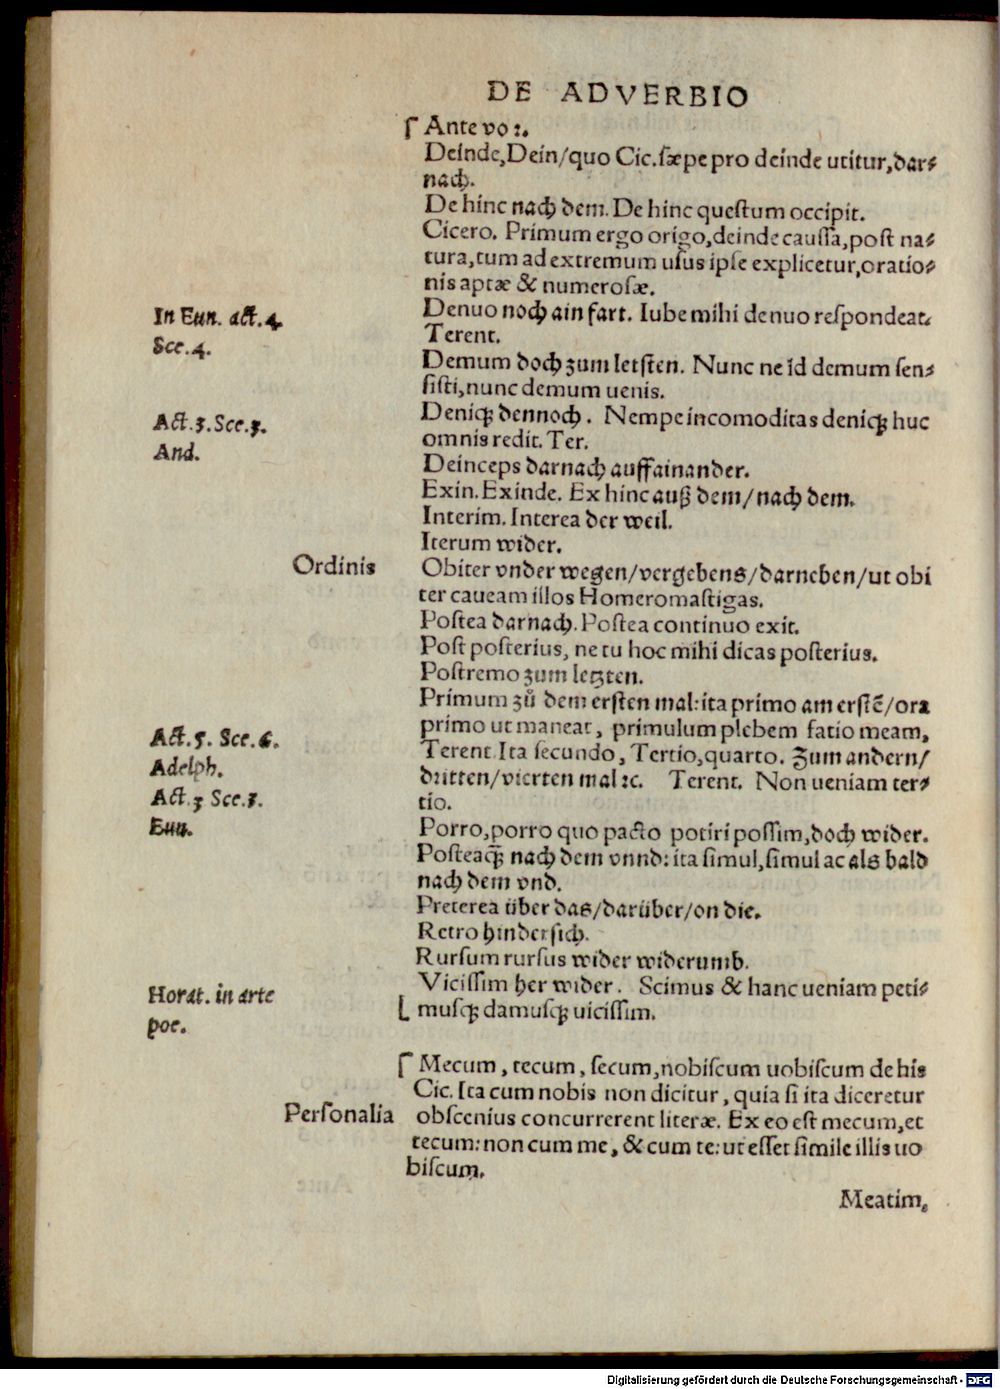 DE ADVERBIO
Ante voꝛ.
Deinde, Dein/quo Cic. sæpe pro deinde utitur, dar⸗
nach.
De hinc nach dem. De hinc questum occipit.
Cicero. Primum ergo origo, deinde caussa, post na⸗
tura, tum ad extremum usus ipse explicetur, oratio⸗
nis aptæ & numerosæ.
In Eun. act. 4.
Sce. 4.
Denuo noch ain fart. Iube mihi denuo respondeat.
Terent.
Demum doch zum letsten. Nunc ne id demum sen⸗
sisti, nunc demum uenis.
Act. 3. Sce. 3.
And.
Deniqꝫ dennoch. Nempe incomoditas deniqꝫ huc
omnis redit. Ter.
Deinceps darnach auffainander.
Exin. Exinde. Ex hinc auß dem/nach dem.
Interim. Interea der weil.
Iterum wider.
Ordinis
Obiter vnder wegen/vergebens/darneben/ut obi
ter caueam illos Homeromastigas.
Postea darnach. Postea continuo exit.
Post posterius, ne tu hoc mihi dicas posterius.
Postremo zum letzten.
Primum zů dem ersten mal: ita primo am erstē/ora
primo ut maneat, primulum plebem facio meam,
Act. 5. Sce. 6.
Adelph.
Act. 3 Sce. 3.
Eun.
Terent. Ita secundo, Tertio, quarto. Zum andern/
dritten/vierten mal ꝛc. Terent. Non ueniam ter⸗
tio.
Porro, porro quo pacto potiri possim, doch wider.
Posteaqꝫ̃ nach dem vnnd: ita simul, simul ac als bald
nach dem vnd.
Preterea über das/darüber/on die.
Retro hindersich.
Rursum rursus wider widerumb.
Horat. in arte
poe.
Vicissim her wider. Scimus & hanc ueniam peti⸗
musqꝫ damusqꝫ uicissim.
Personalia
Mecum, tecum, secum, nobiscum uobiscum de his
Cic. Ita cum nobis non dicitur, quia si ita diceretur
obscenius concurrerent literæ. Ex eo est mecum, et
tecum: non cum me, & cum te: ut esset simile illis uo
biscum.
Meatim,
Digitalisierung gefördert durch die Deutsche Forschungsgemeinschaft - DFG